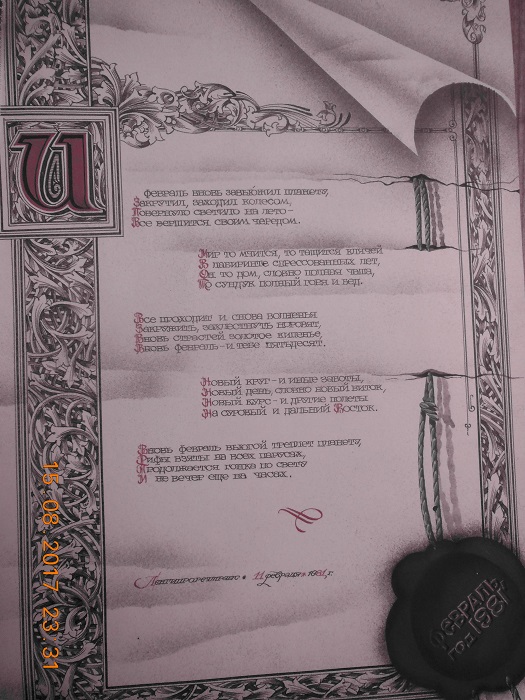 И
февраль вновь завьюжил планету,
Закрутил, заходил колесом,
Повернуло светило на лето –
Все вершится своим чередом.
Мир то мчится, то тащится клячей
В лабиринте спрессованных лет,
Он то дом, словно полная чаша,
То сундук полный горя и бед.
Все проходит и снова волненья
Закружить, захлестнуть норовят,
Вновь страстей золотое кипенье,
Вновь февраль – и тебе пятьдесят.
Новый круг – и иные заботы,
Новый день, словно новый виток,
Новый курс – и другие полеты
На суровый и дальний Восток.
Вновь февраль вьюгой треплет планету,
Рифы взяты на всех парусах,
Продолжается гонка по свету
И не вечер еще на часах.
11 февраля 1981 г.
февраль
год 1981
15 08 2017 23:31